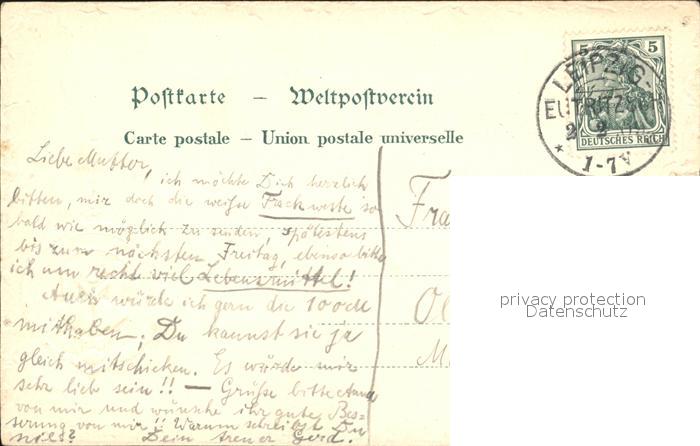 Postkarte – Weltpostverein
Carte postale – Union postale universelle
5 5
DEUTSCHES REICH
LEIPZIG-
EUTRITZSCH
2 2
* 1-7V
Liebe Mutter,
ich möchte Dich herzlich
bitten, mir doch die weiße Frackweste so
bald wie möglich zu senden, spätestens
bis zum nächsten Freitag, ebenso bitte
ich um recht viel Lebensmittel!
Auch würde ich gern die 100
mithaben; Du kannst sie ja
gleich mitschicken. Es würde mir
sehr lieb sein!! — Grüße bitte
von mir und wünsche ihr gute Bes=
serung von mir!! Warum schreibst Du
nie? Dein treuer Gerd.
Fra
Ol
M
privacy protection
Datenschutz